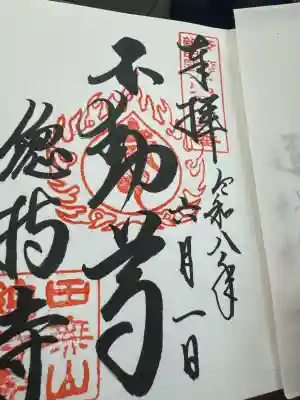 奉拝
令和八年
六月一日
不動尊
總持寺
田無山